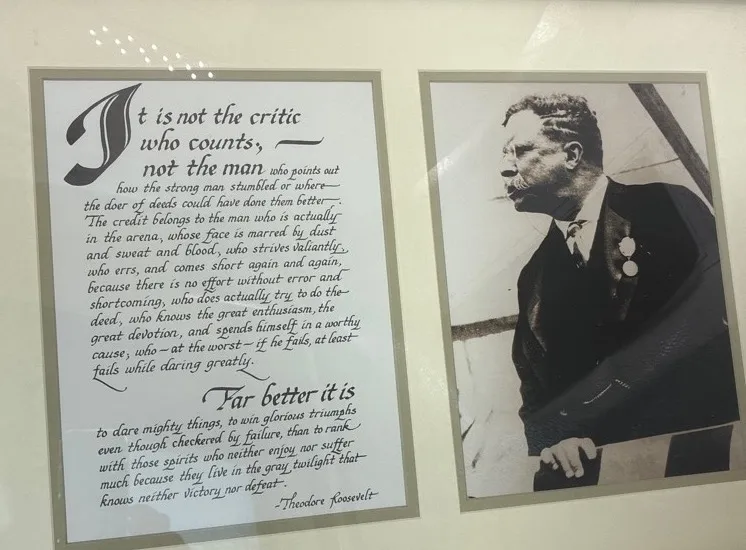 It is not the critic
who counts,
not the man who points out
how the strong man stumbled or where
the doer of deeds could have done them better.
The credit belongs to the man who is actually
in the arena, whose face is marred by dust
and sweat and blood, who strives valiantly,
who errs, and comes short again and again,
because there is no effort without error and
shortcoming, who does actually try to do the
deed, who knows the great enthusiasm, the
great devotion, and spends himself in a worthy
cause; who — at the worst — if he fails, at least
fails while daring greatly.
Far better it is
to dare mighty things, to win glorious triumphs
even though checkered by failure, than to rank
with those spirits who neither enjoy nor suffer
much because they live in the gray twilight that
knows neither victory nor defeat.
-Theodore Roosevelt